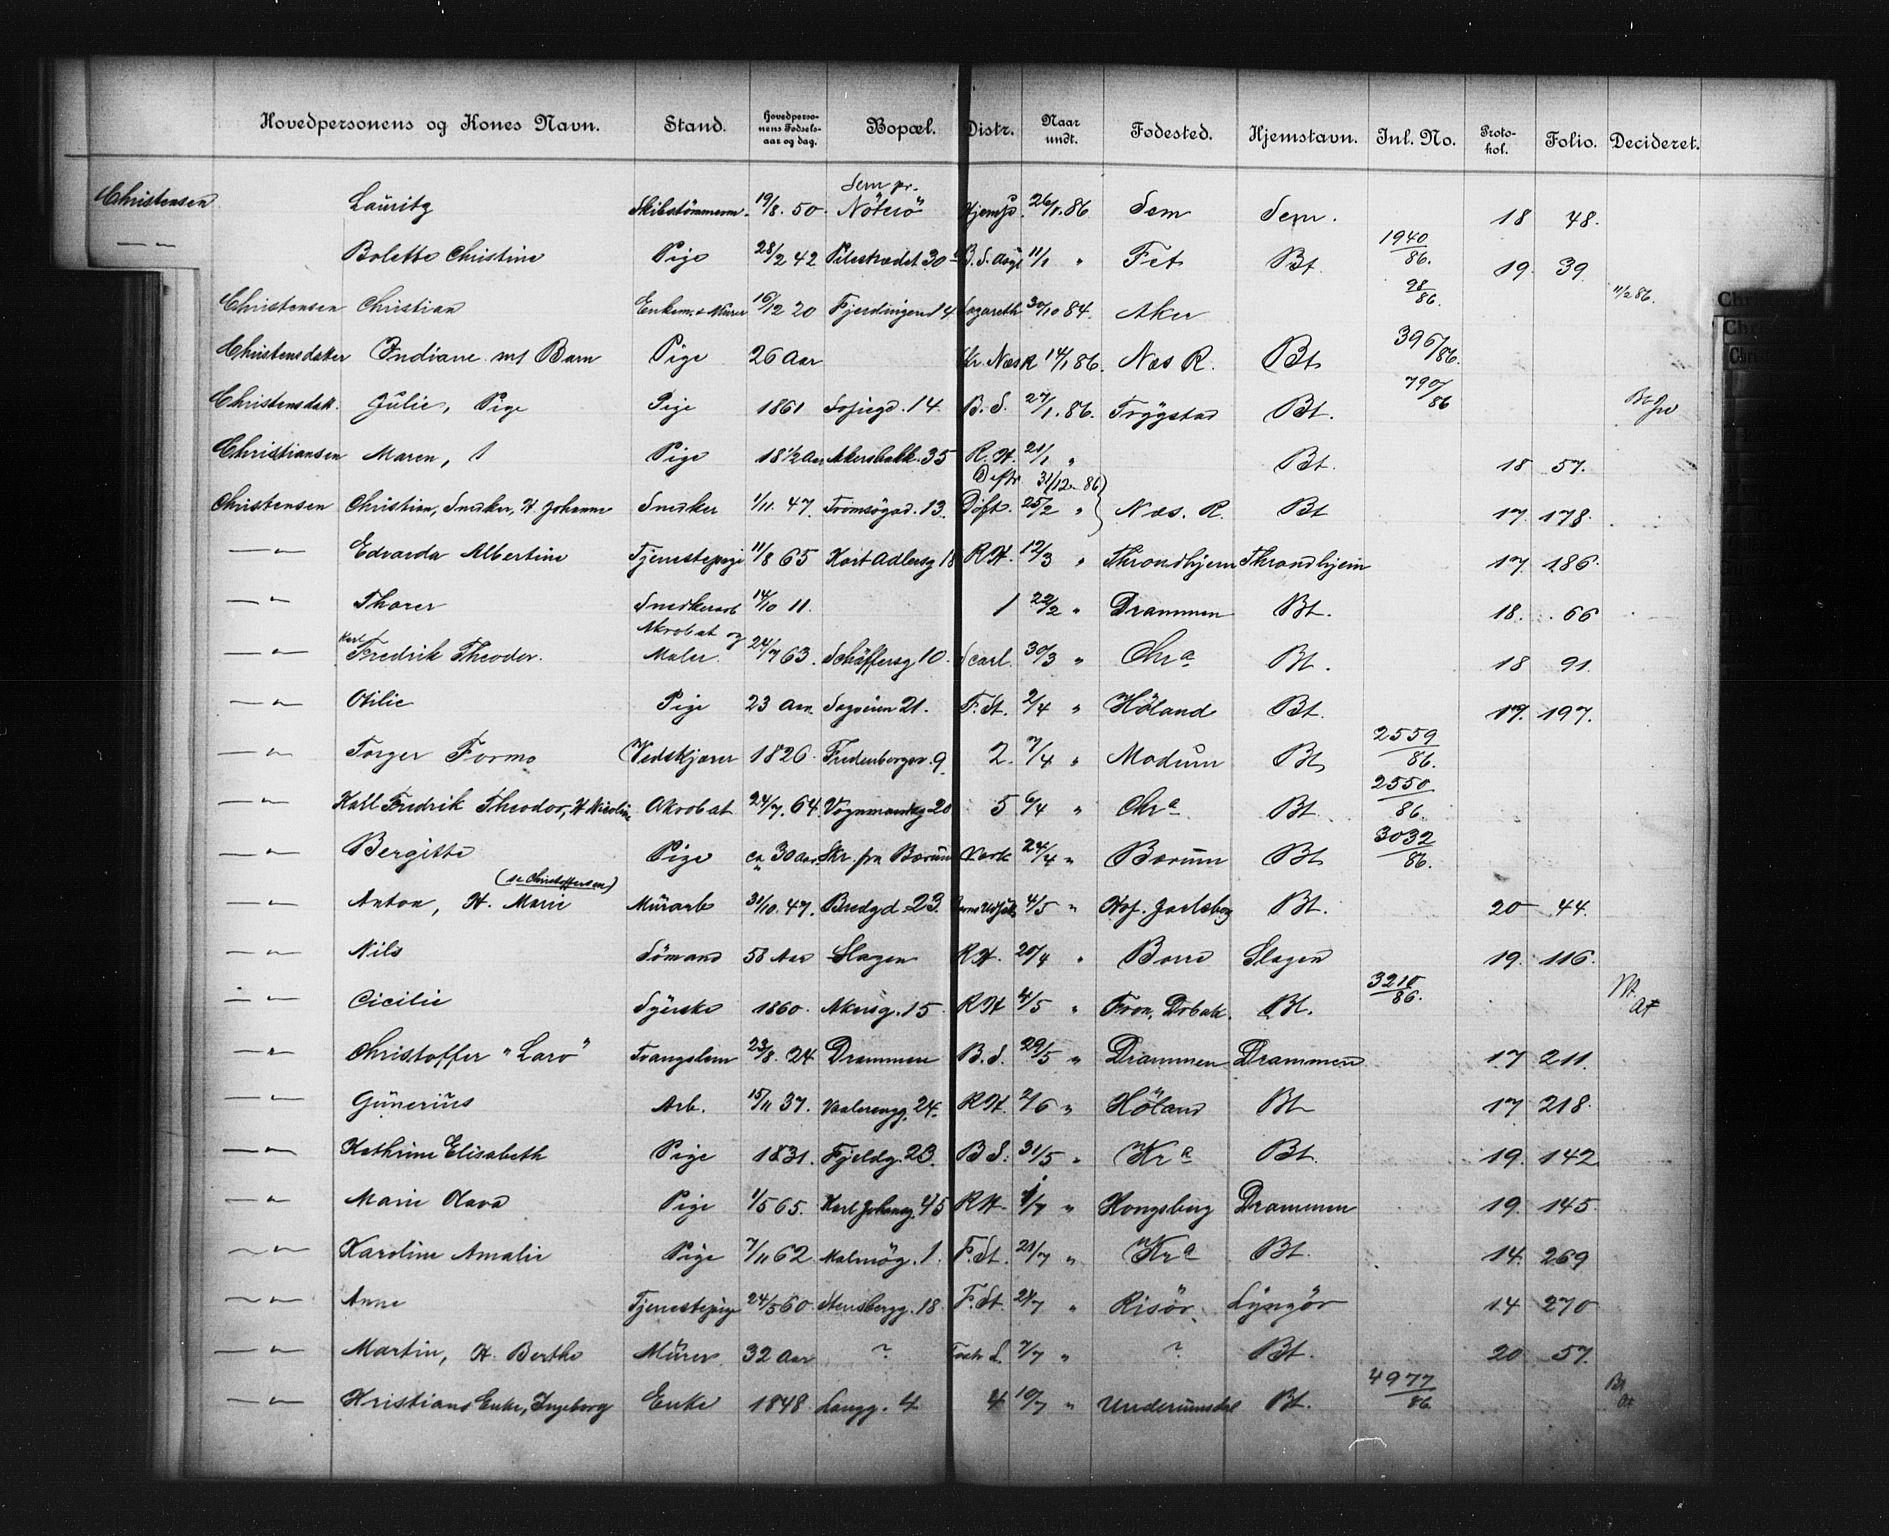 Hovedpersonens og Kones Navn. Stand. Hovedperso- nens Fødsels- aar og dag. Bopæl. Distr. Naar undt. Fødested. Hjemstavn. Inl. No. Proto- kol. Folio. Decideret.
Christensen Lauritz Skibstømmerm. 19/8. 50. Sem pr. Nöterö Hjemst. 26/1. 86 Sem Sem. 18 48.
— " — Bolette Christine Pige 28/2 42 Pilestrædet 30 11/1 " Fet Bt. 1940/86. 19. 39
Christensen Christian Enkem. & Murer 16/12 20 Fjerdingen 14 Lazareth 30/10 84. Aker 98/86. 11/2 86.
Christensdatter Indiane m/ Barn Pige 26 Aar Nes R 14/1 86. Næs R. Bt. 396/86.
Christensdatt. Julie, Pige Pige 1861 Sofiegd. 14. B. S. 27/1. 86. Trygstad Bt. 790/86
Christiansen Maren, Pige 18 1/2 Aar Akersbakk. 35 R. H. 21/1 " Bt. 18 57.
Deftr. 31/12 - 86)
Christensen Christian, Snedker, H. Johanne Snedker 1/11. 47. Tromsögad. 13. Deft. 25/2 " Næs. R. Bt 17. 178.
— " — Edvarda Albertine Tjenestepige 11/8 65 Kort Adlersg 18 R. H. 12/3 " Throndhjem Throndhjem 17. 186.
— " — Thorer Snedkerarb 14/10 11. 1 22/2 " Drammen Bt. 18. 66
— " — Karl Fredrik Theodor. Akrobat og Maler. 24/7 63. Schäffersg 10. 30/3 " Chra Bt. 18 91.
— " — Otilie Pige 23 Aar. Sagveien 21. F. St. 2/4 " Höland Bt. 17. 197.
— " — Torger Formo Vedskjærer 1826. Fredensborgv. 9. 2. 7/4 " Modum Bt. 2559/86.
— " — Karl Fredrik Theodor, H. Nicoline Akrobat 24/7. 64. Vognmandsg 20 5 6/4 " Chra Bt. 2550/86.
— " — Bergitte Pige ca 30 Aar Skr. fra Bærum 24/4 " Bærum Bt. 3032/86.
— " — Anton, H. Marie (se Christoffersen) Murarb 31/10. 47. Bredgd. 23. 4/5 " Hof. Jarlsberg Bt. 20 44.
— " — Nils Sömand 58 Aar Slagen R. H. 20/4 " Borre Slagen 19. 116.
— " — Cicilie Syerske 1860. Akersg. 15. R H 4/5 " Fron, Dröbak. Bt. 3210/86.
— " — Christoffer "Laro" Tvangslem 23/8. 24. Drammen B. S. 29/5 " Drammen Drammen 17. 211.
— " — Gunerius Arb. 15/11 37. Vaalerengg. 24. R. H. 2/6 " Höland Bt 17 218.
— " — Kathrine Elisabeth Pige 1831. Fjeldg. 23. B. S. 31/5 " Kra Bt. 19. 142
— " — Marie Olava Pige 1/5 65. Karl Johansg. 45 R. H. 1/7 " Kongsberg Drammen 19. 145.
— " — Karoline Amalie Pige 7/11 62. Malmög. 1. F. St. 21/7 " Kra Bt. 14. 269
— " — Anne Tjenestepige 24/5 60. Stensbergg. 18. F. St. 24/7 " Risör Lyngör 14 270
— " — Martin, H. Berthe Murer 32 Aar ? 7/7 " ? Bt. 20 57.
— " — Kristians Enke, Ingeborg Enke 1848. Langg. 4. 4 10/7 " Bt. 4977/86.